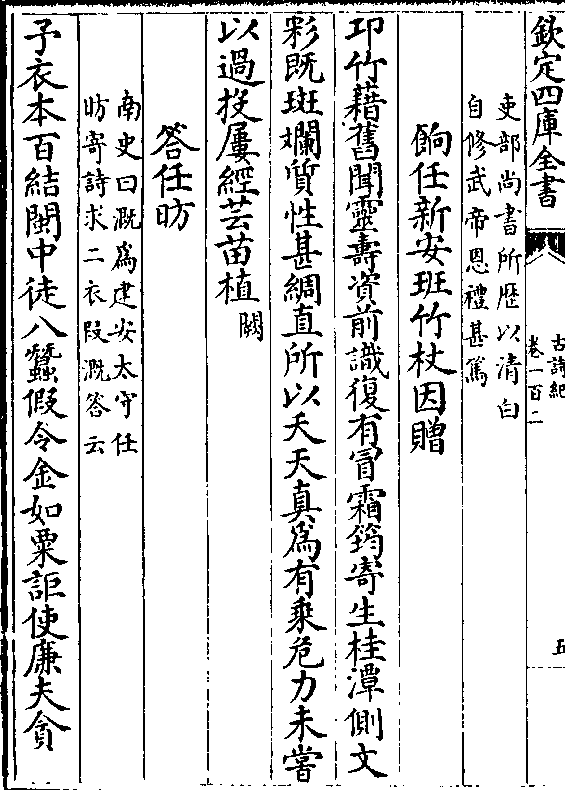 欽定四庫全書
古詩紀
卷一百二
五
吏部尚書所歴以清白
自修武帝恩禮甚篤
餉任新安班竹杖因贈
邛竹藉舊聞靈壽資前識復有冒霜筠寄生桂潭側文
彩既斑斕質性甚綢直所以夭天真為有乗危力未嘗
以過投屢經芸苗植闕
答任昉
南史曰溉為建安太守任
昉寄詩求二衣段溉答云
子衣本百結閩中徒八蠶假令金如粟詎使廉夫貪